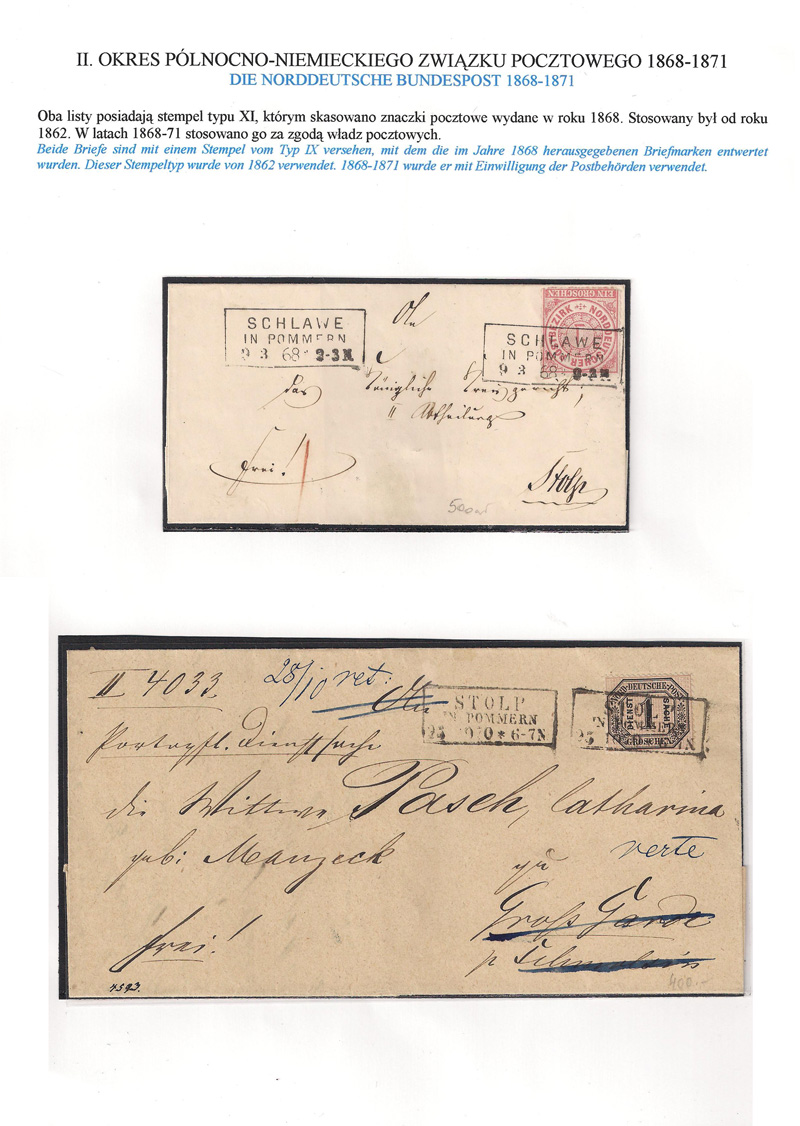 II. OKRES PÓLNOCNO-NIEMIECKIEGO ZWIĄZKU POCZTOWEGO 1868-1871
DIE NORDDEUTSCHE BUNDESPOST 1868-1871
Oba listy posiadają stempel typu XI, którym skasowano znaczki pocztowe wydane w roku 1868. Stosowany był od roku
1862. W latach 1868-71 stosowano go za zgodą władz pocztowych.
Beide Briefe sind mit einem Stempel vom Typ IX versehen, mit dem die im Jahre 1868 herausgegebenen Briefmarken entwertet
wurden. Dieser Stempeltyp wurde von 1862 verwendet. 1868-1871 wurde er mit Einwilligung der Postbehörden verwendet.
EIN GROSCHEN
NORDDEUTSCHER
SCHLAWE
IN POMMERN
9 3 68 * 2-3 N
SCHLAWE
IN POMMERN
9 3 68 * 2-3 N
An
das Königliche Kreisgericht,
II Abtheilung
Frei!
Stolp
II 4033
28/10 ret:
An
STOLP
IN POMMERN
* 6-7N
NORD-DEUTSCHE-POST
DIENST SACHE
1
GROSCHEN
Portopfl. Dienstsache
die Wittwe Pasch, Catharina
geb: Manzeck
zu verte
Groß Garde
p Schmolsin
frei!
4593.
400.-